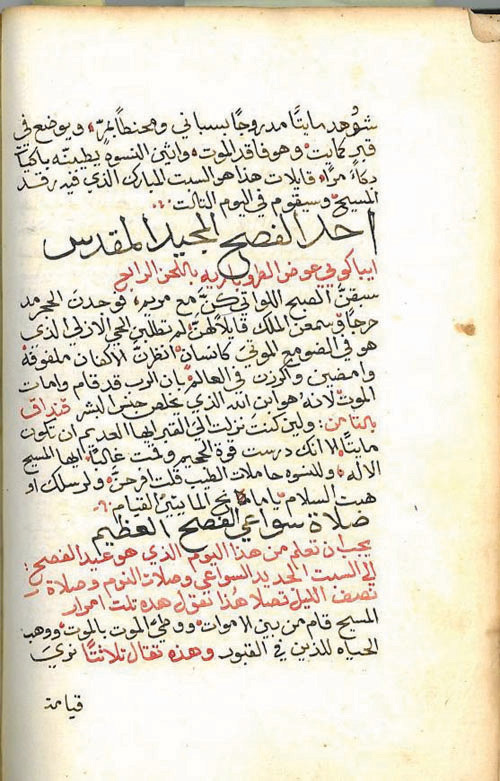 شوهد مايتًا مدروجًا بسباني ومحنطًا بمرّ، ويوضع في
قبر كمايت، وهو فاقد الموت، واتين النسوة يطيبنه باكيات
بكاءً مرًا، قايلات هذا هو السبت المبارك الذي فيه رقد
المسيح وسيقوم في اليوم التالت
احد الفصح المجيد المقدس
ايباكويي عوض الطروبارية باللحن الرابع
سبقن الصبح اللواتي كنّ مع مريم، فوجدن الحجر مد
حرجًا، وسمعن الملاك قايلًا لهن، لم تطلبن الحي الازلي الذي
هو في الضو مع الموتي كانسان، انظرن الاكفان ملفوفة
وامضين واكرزن في العالم، بان الرب قد قام وامات
الموت لانه هو ابن الله الذي يخلص جنس البشر قنداق
بالتامن: ولين كنت نزلت الي القبر ايها العديم ان تكون
مايتًا، الا انك درست قوة الجحيم وقمت غالبًا، ايها المسيح
الاله، وللنسوه حاملات الطيب قلت افرحن، ولرسلك او
هبت السلام، يا مانح المايتين القيام
صلاة سواعي الفصح العظيم
يجب ان تعلم من هذا اليوم الذي هو عيد الفصح
الي السبت الجديد السواعي وصلات النوم وصلاة
نصف الليل تصلا هذا تقول هذه تلت امرار
المسيح قام من بين الاموات، ووطي الموت بالموت، ووهب
الحياه للذين في القبور وهذه تقال تلاتتًا نري
قيامة